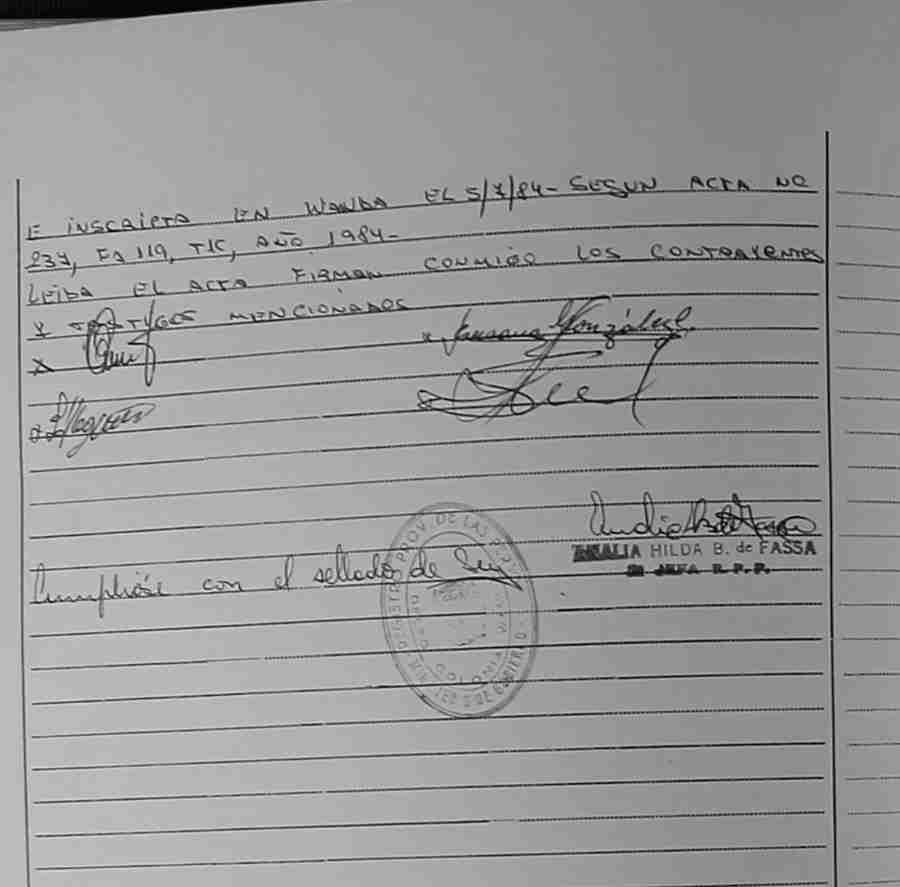 E INSCRIPTA EN WANDA EL 5/7/84- SEGUN ACTA NO
237, Fo 119, TIC, AÑO 1984-
LEIDA EL ACTA FIRMAN CONMIGO LOS CONTRAYENTES
Y TESTIGOS MENCIONADOS
x
x González
Cumplióse con el sellado de Ley
AMALIA HILDA B. de FASSA
JEFA R. P. P.
REGISTRO PROV. DE LAS
COLONIA